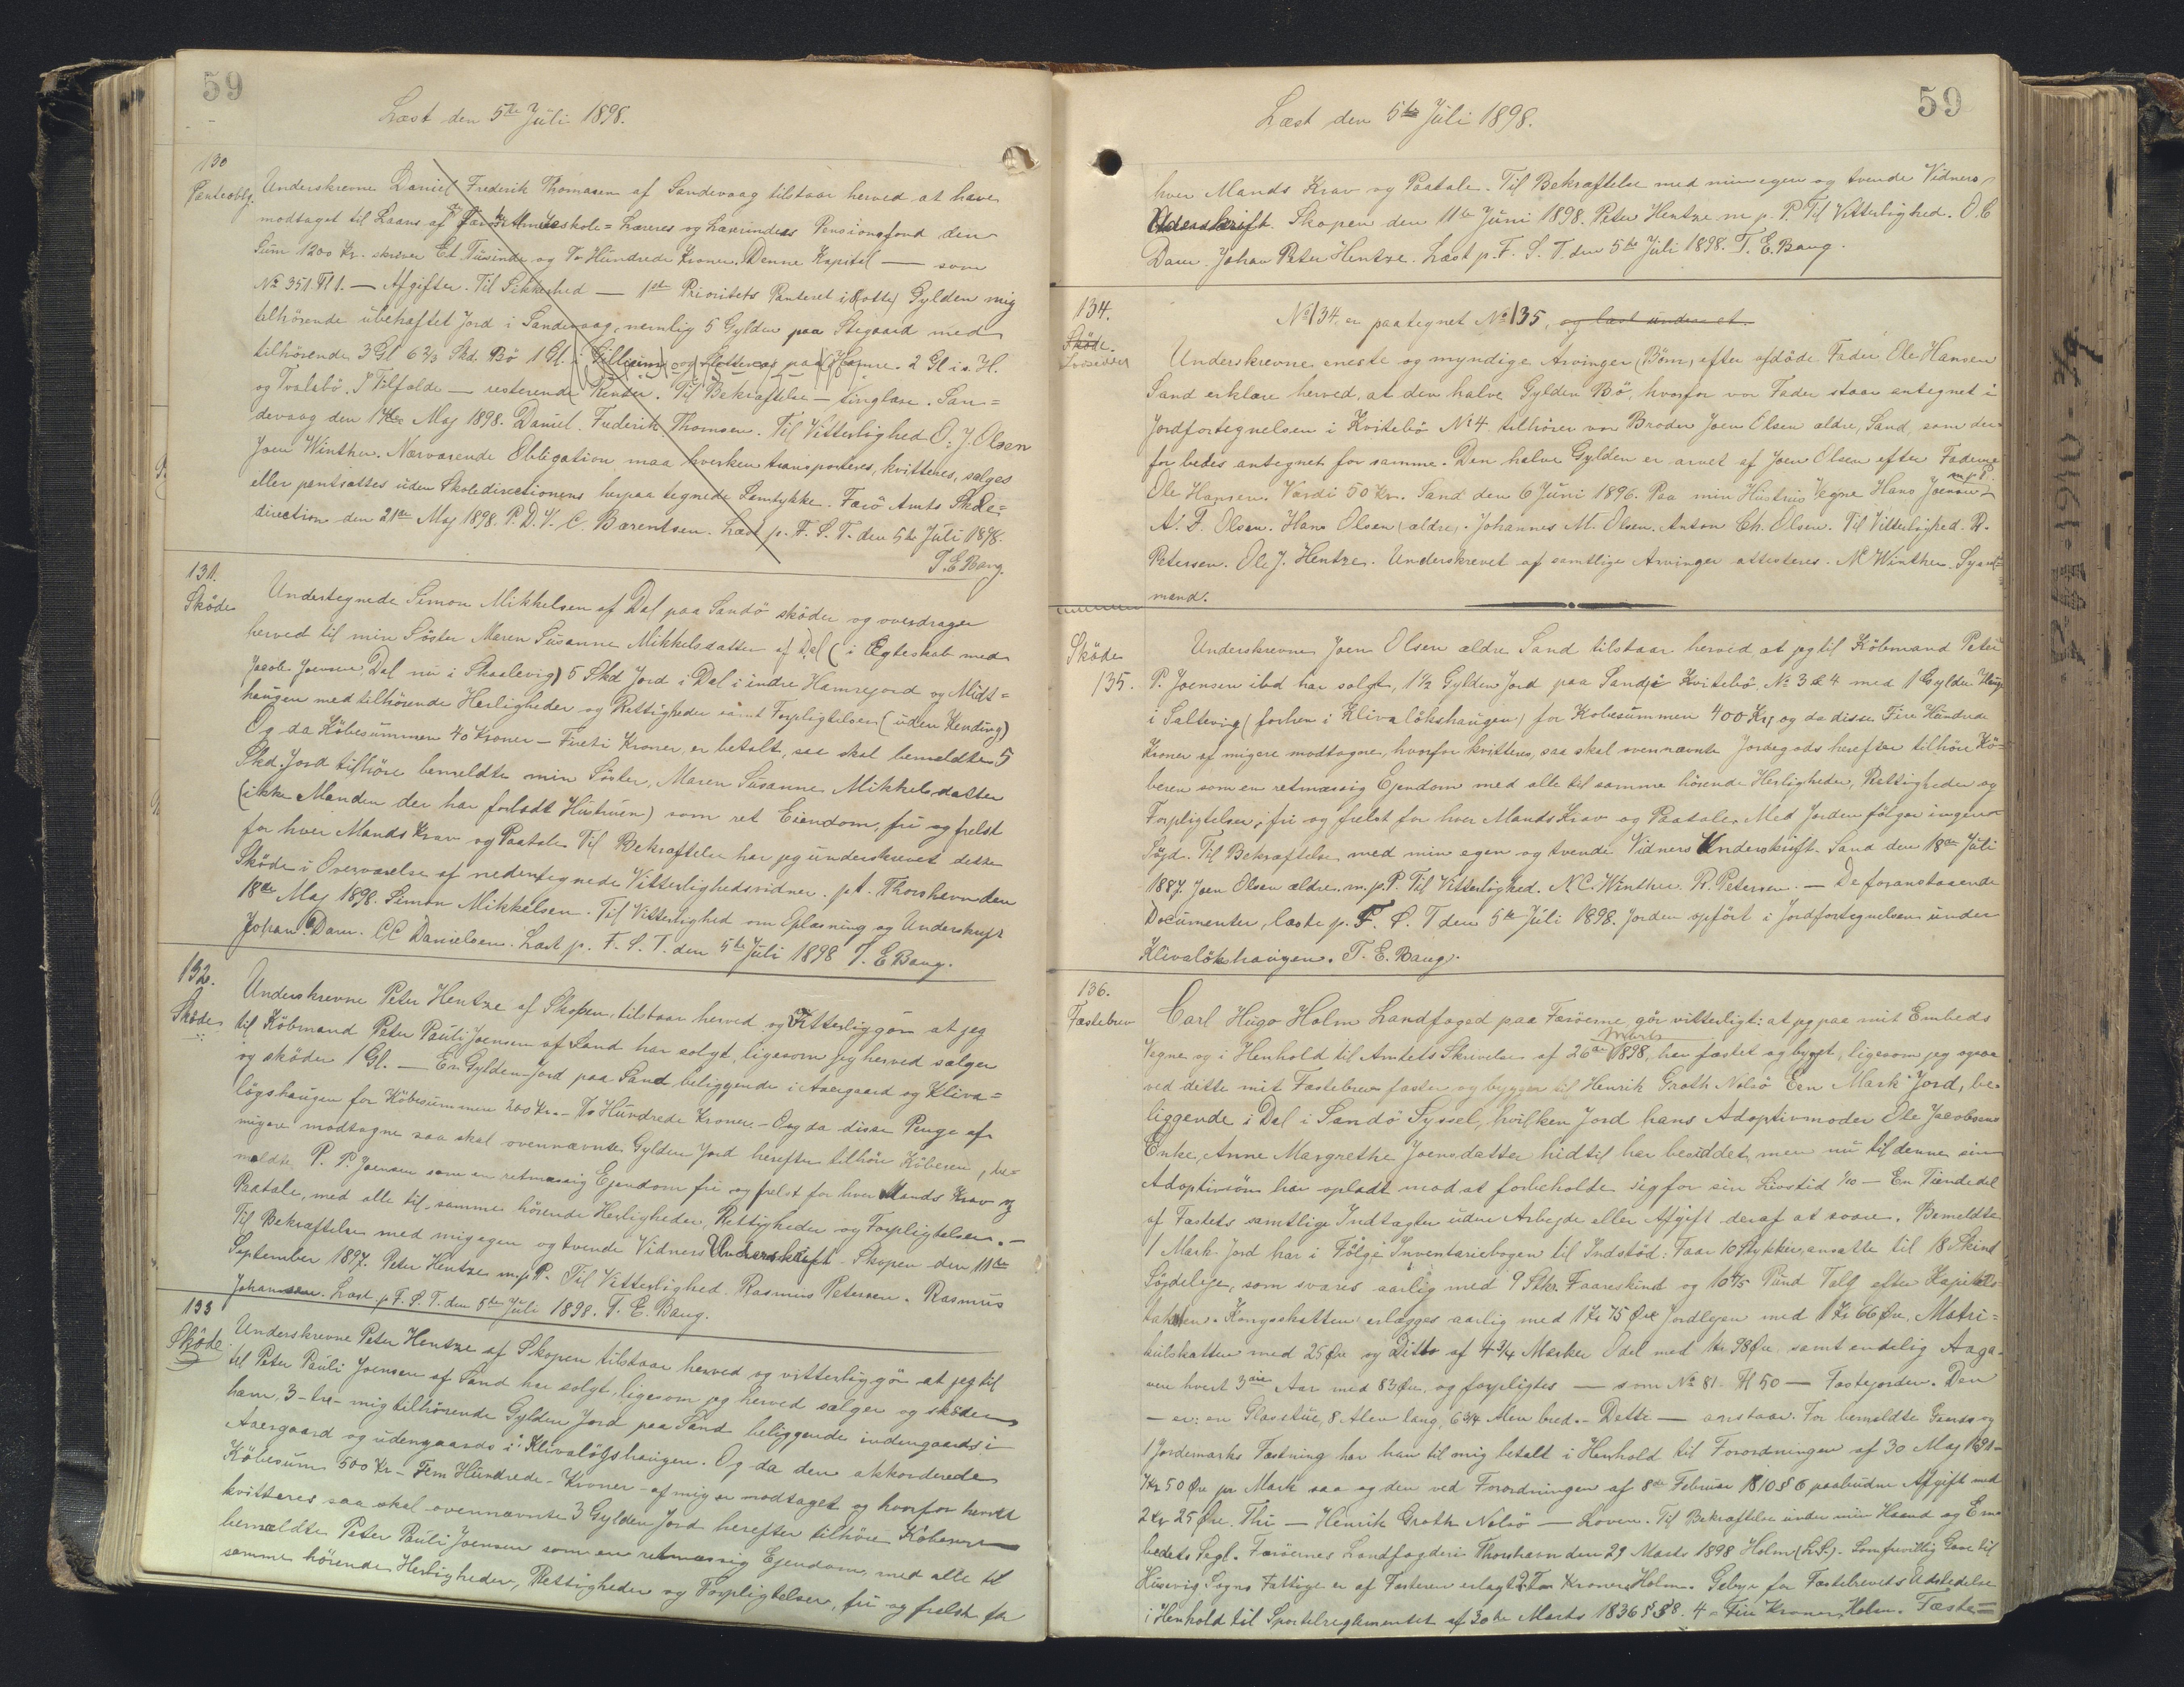 59
Læst den 5te Juli 1898.
130
Panteoblg.
Underskrevne Daniel Frederik Thomasen af Sandevaag tilstaar herved at have
modtaget til Laans af Færø Almueskole= Læreres og Lærerinders Pensionsfond den
Sum 1200 Kr. skriver Et Tusinde og To Hundrede Kroner. Denne Kapital — som
No 351. Pl 1. — Afgifter. Til Sikkerhed — 1ste Prioritets Panteret i (otte) Gylden mig
tilhörende ubehæftet Jord i Sandevaag, nemlig 5 Gylden paa Stegaard med
tilhörende 3 Gl 6 2/3 Skd. Bö 1 Gl. i paa Hamre. 2 Gl i s. H.
og Tvalsbö. I Tilfælde — resterende Renter. Til Bekræftelse — tinglæse. San=
devaag den 14de Maj 1898. Daniel Frederik Thomsen. Til Vitterlighed O. J. Olsen
Joen Winther. Nærværende Obligation maa hverken transporteres, kvitteres, sælges
eller pantsættes uden Skoledirectionens herpaa tegnede Samtykke. Færö Amts Skole=
direction den 21de Maj 1898. P. D. V. C. Bærentsen. Læst p. F. S. T. den 5te Juli 1898.
T. E. Bang.
131.
Sköde
Undertegnede Simon Mikkelsen af Dal paa Sandö sköder og overdrager
herved til min Söster Maren Susanne Mikkelsdatter af Dal (i Ægteskab med
Jacob Joensen Dal nu i Skaalevig) 5 Skd Jord i Dal i indre Hamrejord og Midt=
haugen med tilhörende Herligheder og Rettigheder samt Forpligtelser (uden Kending)
Og da Köbesummen 40 Kroner — Fireti Kroner, er betalt, saa skal bemeldte 5
Skd. Jord tilhöre bemeldte min Söster, Maren Susanne Mikkelsdatter
(ikke Manden der har forladt Hustruen) som ret Eiendom, fri og frelst
for hver Mands Krav og Paatale. Til Bekræftelse har jeg underskrevet dette
Sköde i Overværelse af nedentegnede Vitterlighedsvidner. p.t. Thorshavn den
18de Maj 1898. Simon Mikkelsen. Til Vitterlighed om Oplæsning og Underskrift
Johan Dam. CC Danielsen. Læst p. F. S. T. den 5te Juli 1898 T. E Bang.
132.
Sköde
Underskrevne Peter Hentze af Skopen, tilstaar herved og Vitterliggör at jeg
til Köbmand Peter Pauli Joensen af Sand har solgt, ligesom jeg herved sælger
og sköder 1 Gl. — En Gylden Jord paa Sand beliggende i Aaergaard og Kliva=
lögshaugen for Köbesummen 200 Kr. — To Hundrede Kroner. — Og da disse Penge af
mig ere modtagne saa skal ovennævnte Gylden Jord herefter tilhöre Köberen, be=
meldte P. P. Joensen som en retmæssig Ejendom fri og frelst for hver Mands Krav og
Paatale, med alle til samme hörende Herligheder, Rettigheder og Forpligtelser. —
Til Bekræftelse med mig egen og tvende Vidners Underskrift. Skopen den 11te
September 1897. Peter Hentze m. p. P. Til Vitterlighed. Rasmus Petersen. Rasmus
Johansen. Læst p. F. S. T. den 5te Juli 1898. T. E. Bang.
133
Sköde
Underskrevne Peter Hentze af Skopen tilstaar herved og vitterliggör at jeg til
til Peter Pauli Joensen af Sand har solgt, ligesom jeg herved sælger og sköder
ham, 3 — tre — mig tilhörende Gylden Jord paa Sand beliggende indengaards i
Aaergaard og udengaards i Klivalögshaugen. Og da den akkorderede
Köbesum 500 Kr — Fem Hundrede — Kroner — af mig er modtaget og hvorfor herved
kvitteres saa skal ovennævnte 3 Gylden Jord herefter tilhöre Köberen
bemældte Peter Pauli Joensen som en retmæssig Ejendom, med alle til
samme hörende Herligheder, Rettigheder og Forpligtelser, fri og frelst for
59
Læst den 5te Juli 1898.
hver Mands Krav og Paatale. Til Bekræftelse med min egen og tvende Vidners
Underskrift. Skopen den 11te Juni 1898. Peter Hentze m. p. P. Til Vitterlighed. O. C
Dam. Johan Peter Hentze. Læst p. F. S. T. den 5te Juli 1898. T. E. Bang.
134.
Sköde.
No 134, er paategnet No 135, og læst under et.
Underskrevne eneste og myndige Arvinger (Börn) efter afdöde Fader Ole Hansen
Sand erklære herved, at den halve Gylden Bö, hvorfor vor Fader staar antegnet i
Jordfortegnelsen i Kvitebö No 4 tilhører vor Broder Joen Olsen ældre, Sand, som der
for bedes antegnet for samme. Den halve Gylden er arvet af Joen Olsen efter Faderen
Ole Hansen. Værdi 50 Kr. Sand den 6 Juni 1896. Paa min Hustrus Vegne Hans Joensen m. p. P.
A. F. Olsen. Hans Olsen (ældre). Johannes M. Olsen. Anton Ch. Olsen. Til Vitterlighed. R.
Petersen. Ole J. Hentze. Underskrevet af samtlige Arvinger attesteres. N Winther Syssel=
mand.
Sköde
135.
Underskrevne Joen Olsen ældre Sand tilstaar herved, at jeg til Köbmand Peter
P. Joensen ibd har solgt, 1½ Gylden Jord paa Sand i Kvitebö, No 3 & 4 med 1 Gylden Hauge
i Saltevig (forhen i Klivalökshaugen) for Kobesummen 400 Kr, og da disse Fire Hundrede
Kroner af mig ere modtagne, hvorfor kvitteres, saa skal ovennævnte Jordegods herefter tilhöre Kö=
beren som en retmæssig Ejendom med alle til samme hörende Herligheder, Rettigheder og
Forpligtelser, fri og frelst for hver Mands Krav og Paatale. Med Jorden fölger ingen
Söjd. Til Bekræftelse med min egen og tvende Vidners Underskrift. Sand den 18de Juli
1887. Joen Olsen ældre. m. p. P. Til Vitterlighed. N. C. Winther. R. Petersen. — De foranstaaende
Documenter, læste p. F. S. T den 5te Juli 1898. Jorden opfört i Jordfortegnelsen under
Klivalökhaugen. T. E. Bang.
136.
Fæstebrev
Carl Hugo Holm Landfoged paa Færöerne gör vitterligt: at jeg paa mit Embeds
Vegne og i Henhold til Amtets Skrivelse af 26de Marts 1898, har fæstet og bygget, ligesom jeg ogsaa
ved dette mit Fæstebrev fæster og bygger til Henrik Groth Nolsö Een Mark Jord, be=
liggende i Dal i Sandö Syssel, hvilken Jord hans Adoptivmoder Ole Jacobsens
Enke, Anne Margrethe Joensdatter hidtil har besiddet, men nu til denne sin
Adoptivsön har opladt mod at forbeholde sig for sin Livstid 1/10 — En Tiendedel
af Fæstets samtlige Indtægter uden Arbejde eller Afgift deraf at svare. Bemeldte
1 Mark Jord har i Fölge Inventariebogen til Indstöd: Faar 10 Stykker, ansatte til 18 Skind
Söjdeleje, som svares aarlig med 9 Stkr. Faareskind og 10 4/5 Pund Talg efter Kapitels=
taksten. Kongsskatten erlægges aarlig med 1 Kr 75 Øre Jordlejen med 1 Kr 66 Øre, Matri=
kulskatten med 25 Øre og Ditto af 4 3/4 Marker Odel med 1 Kr 98 Øre samt endelig Aaga=
ven hvert 3die Aar med 83 Øre, og forpligtes — som No 81. Pl 50 — Fæstejorden. Den
— er: en Glasstue, 8 Alen lang, 6 3/4 Alen bred. — Dette — anstaar. For bemeldte Gaards og
1 Jordemarks Fæstning har han til mig betalt i Henhold til Forordningen af 30 Maj 1691 —
1 Kr 50 Øre pr Mark saa og den ved Forordningen af 8de Februar 1810 § 6 paabudne Afgift med
2 Kr 25 Øre. Thi — Henrik Groth Nolsö — Loven. Til Bekræftelse under min Haand og Em=
bedets Segl. Færöernes Landfogderi Thorshavn den 29 Marts 1898 Holm (L.S.). Som frivillig Gave til
Husevig Sogns Fattige er af Fæsteren erlagt 2 To Kroner Holm. Gebyr for Fæstebrevets Udstedelse
i Henhold til Sportelreglementet af 30te Marts 1836 § 58. 4 = Fire Kroner Holm. Fæste=